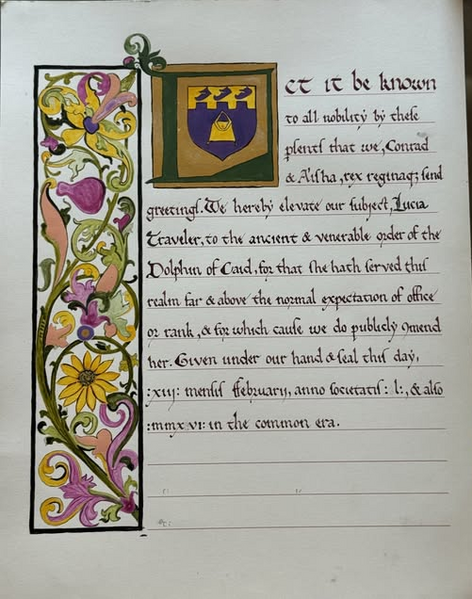 Let it be known
to all nobility by these
presents that we, Conrad
& Aisha, rex reginaq; send
greetings. We hereby elevate our subject, Lucia
Traveler, to the ancient & venerable order of the
Dolphin of Caid, for that she hath served this
realm far & above the normal expectation of office
or rank, & for which cause we do publicly 9mend
her. Given under our hand & seal this day,
:xiii: mensis ffebruarij, anno societatis :l:, & also
:mmxvi: in the common era.